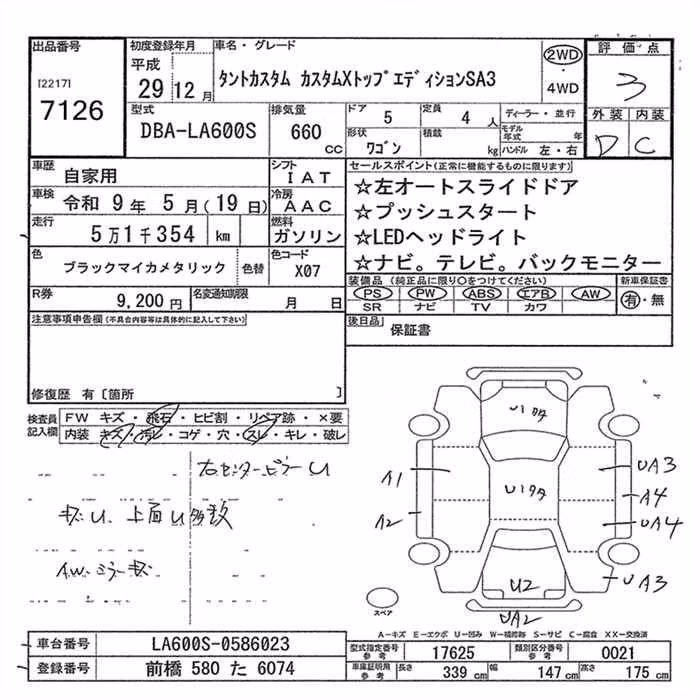 出品番号 初度登録年月 車名・グレード 評価点
[2217] 平成 2WD
7126 29 12月 タントカスタム カスタムXトップエディションSA3 ・ 3
4WD
型式 排気量 ドア 5 定員 4 人 ディーラー・並行 外装 内装
DBA-LA600S 660 CC 形状 ワゴン 積載 kg モデル年式 年 D C
ハンドル 左・右
車歴 自家用 シフト IAT セールスポイント(正常に機能するものに限ります)
車検 令和 9年 5月(19日) 冷房 AAC ☆左オートスライドドア
走行 5万1千354 km 燃料 ガソリン ☆プッシュスタート
☆LEDヘッドライト
色 ブラックマイカメタリック 色替 色コード X07 ☆ナビ。テレビ。バックモニター
装備品(純正品に限り○をつけてください) 新車保証書
R券 9,200円 名変通知期限 月 日 PS PW ABS エアB AW 有・無
SR ナビ TV カワ
注意事項申告欄(不具合内容等は具体的に記入して下さい) 後日品 保証書
修復歴 有〔箇所 〕
検査員記入欄 FW キズ・飛石・ヒビ割・リペア跡・×要
内装 キズ・汚レ・コゲ・穴・スレ・キレ・破レ
右センターピラーU
キズU、上面U多数
AW、ミラーキズ
U1タタ
A1 UA3
U1タタ A4
A2 UA4
U2 UA3
スペア UA2
A―キズ E―エクボ U―凹み W―補修跡 S―サビ C―腐食 XX―交換済
車台番号 LA600S-0586023 型式指定番号 参考 17625 類別区分番号 参考 0021
登録番号 前橋 580 た 6074 車庫証明用 参考 長さ 339 cm 幅 147 cm 高さ 175 cm